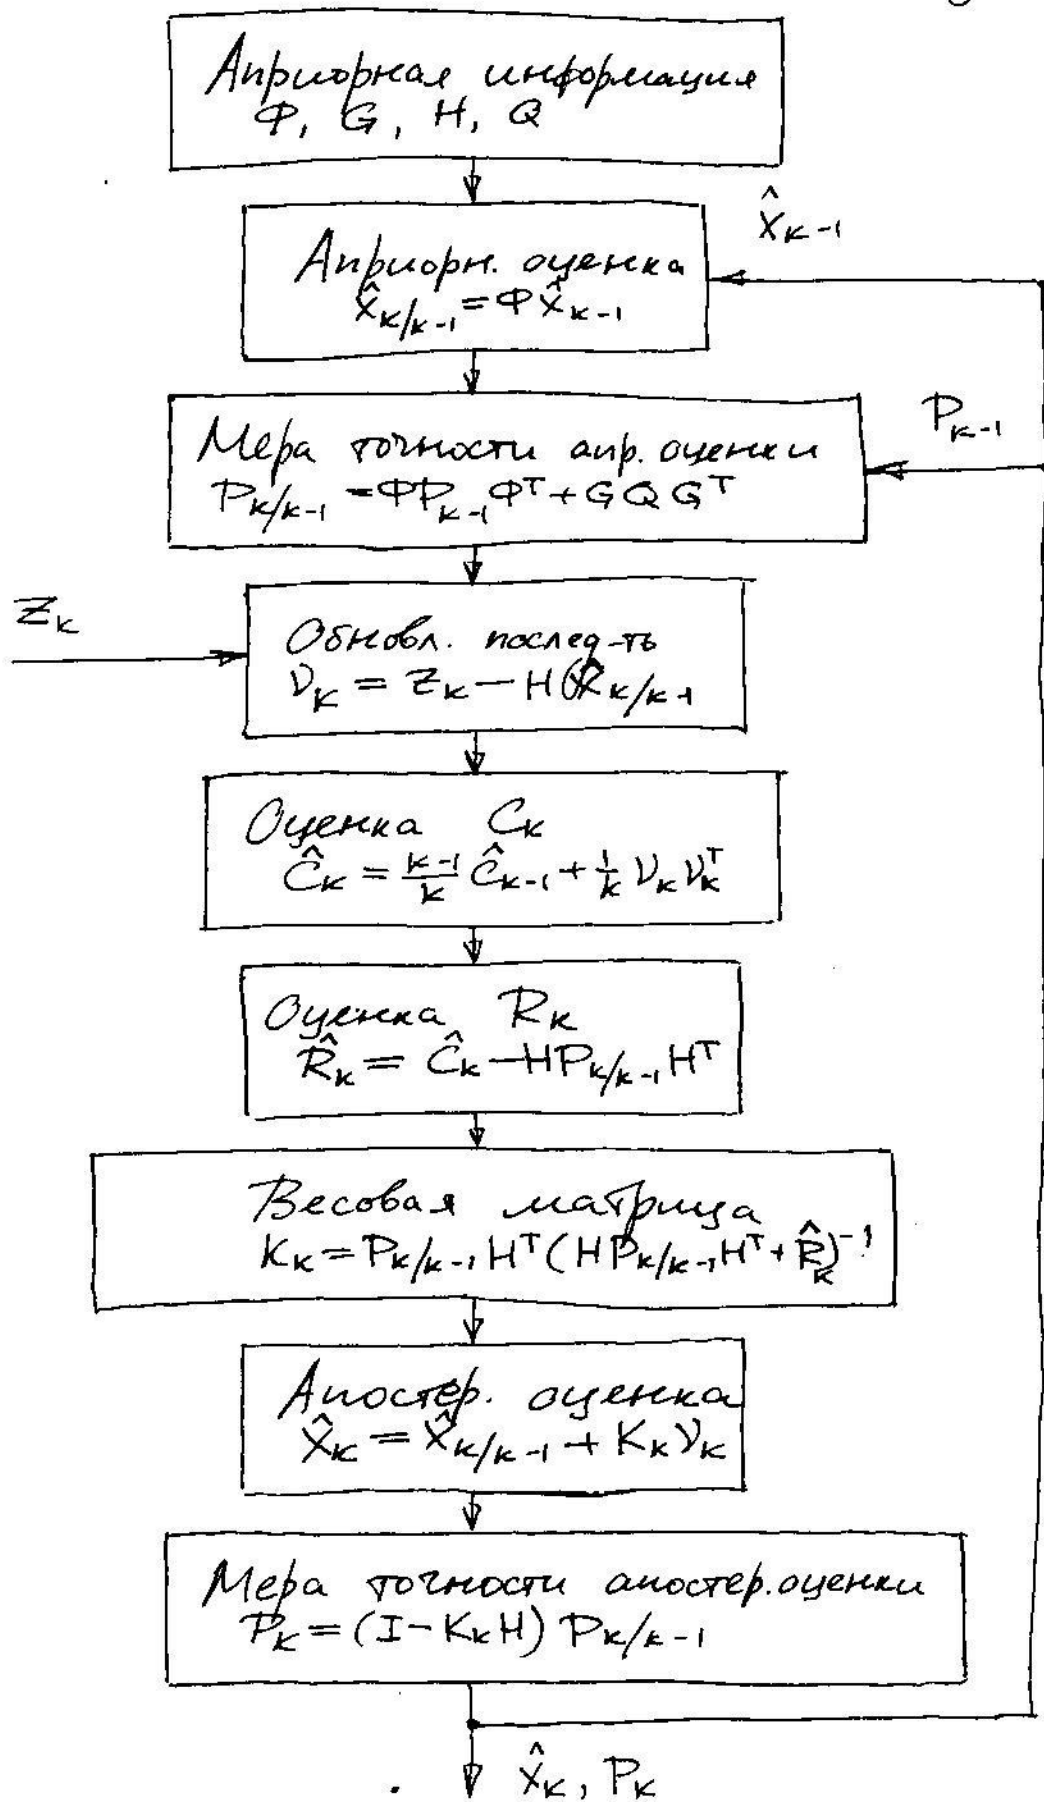 Априорная информация
Ф, G, H, Q
x̂ₖ₋₁
Априорн. оценка
x̂ₖ/ₖ₋₁ = Ф x̂ₖ₋₁
Pₖ₋₁
Мера точности апр. оценки
Pₖ/ₖ₋₁ = ФPₖ₋₁Фᵀ + GQGᵀ
Zₖ
Обновл. послед-ть
νₖ = Zₖ − H x̂ₖ/ₖ₋₁
Оценка Cₖ
Ĉₖ = (k−1)/k Ĉₖ₋₁ + 1/k νₖ νₖᵀ
Оценка Rₖ
R̂ₖ = Ĉₖ − HPₖ/ₖ₋₁Hᵀ
Весовая матрица
Kₖ = Pₖ/ₖ₋₁ Hᵀ (HPₖ/ₖ₋₁Hᵀ + R̂ₖ)⁻¹
Апостер. оценка
x̂ₖ = x̂ₖ/ₖ₋₁ + Kₖνₖ
Мера точности апостер. оценки
Pₖ = (I − KₖH) Pₖ/ₖ₋₁
x̂ₖ, Pₖ